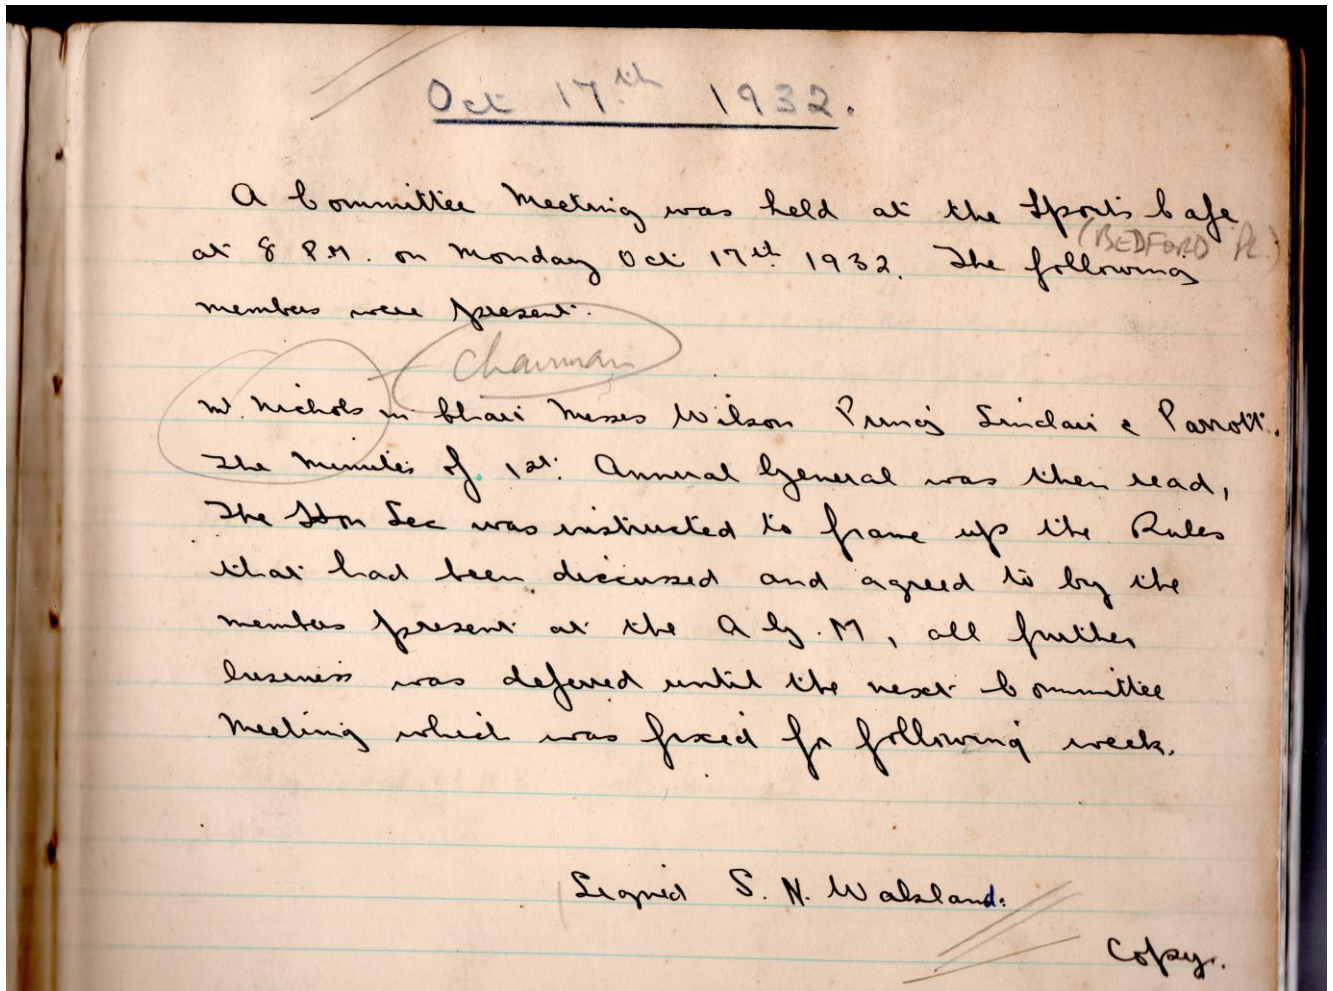 Oct 17th 1932.
A Committee Meeting was held at the Sports Cafe
(BEDFORD Pl.)
at 8 P.M. on Monday Oct 17th 1932. The following
members were present.
Chairman
Mr. Nichols in Chair Messes Wilson Sinclair & Parrott.
The Minutes of 1st. Annual General was then read,
The Hon Sec was instructed to frame up the Rules
that had been discussed and agreed to by the
members present at the A G. M, all further
business was deferred until the next Committee
Meeting which was fixed for following week.
Signed S. N.
Copy.